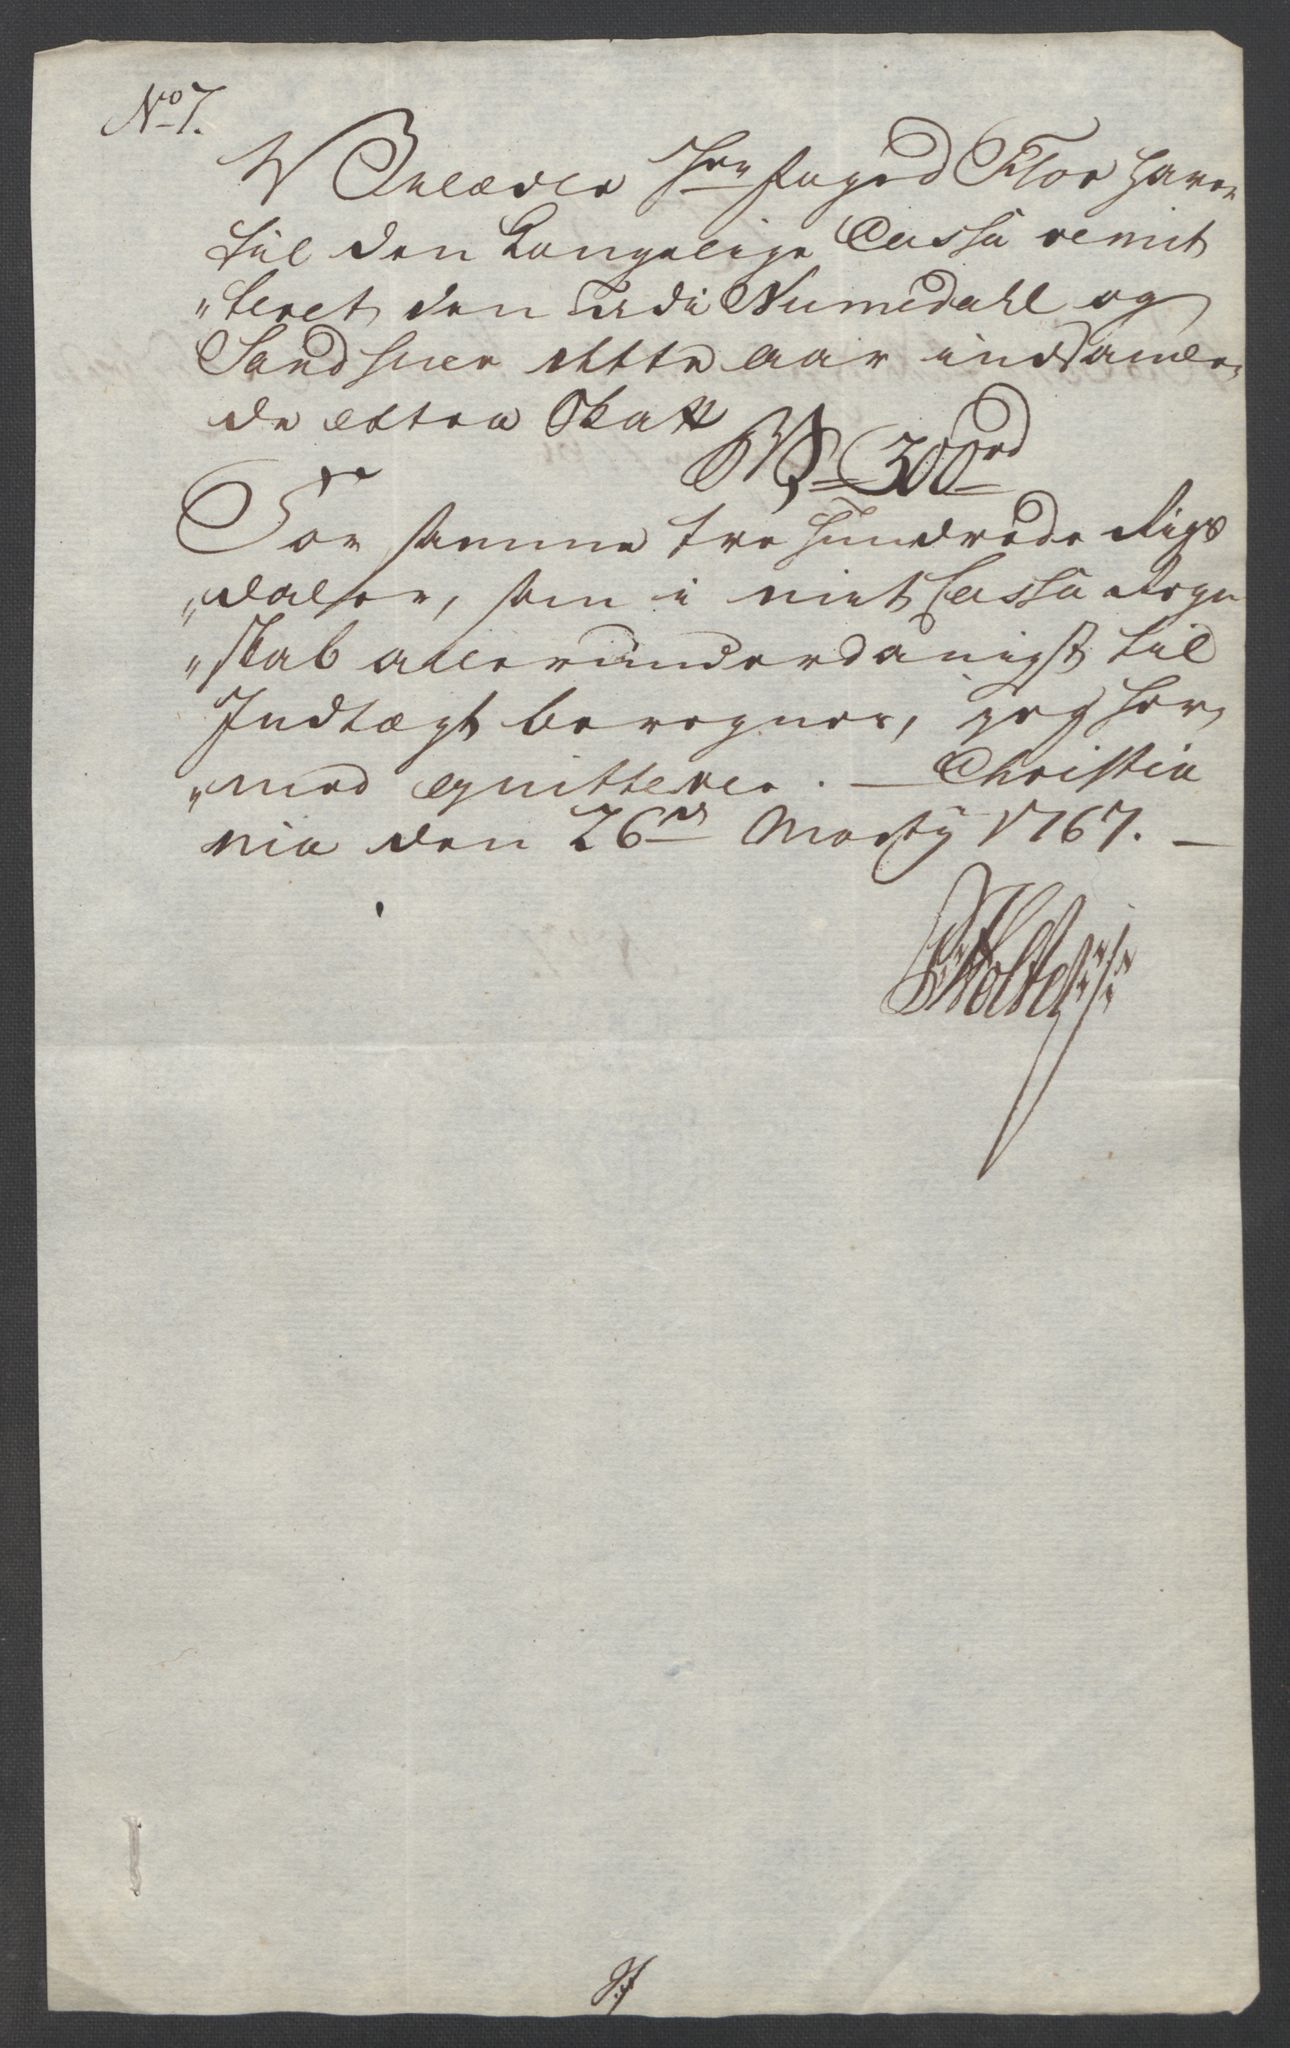 No 7.
Velædle Hrr Foged Flor haver
til den Kongelige Cassa remit
"teret den udi Numedahl og
Sandsver dette aar indsamle-
de extra Skatt
Rdr 300rd
For samme tre hundrede Rigs
"daler, som i mit Cassa Regn
"skab allerunderdanigst til
Indtægt beregnes, jeg her-
"med qvitterer. — Christia
nia den 26de Marty 1767. —
Holte